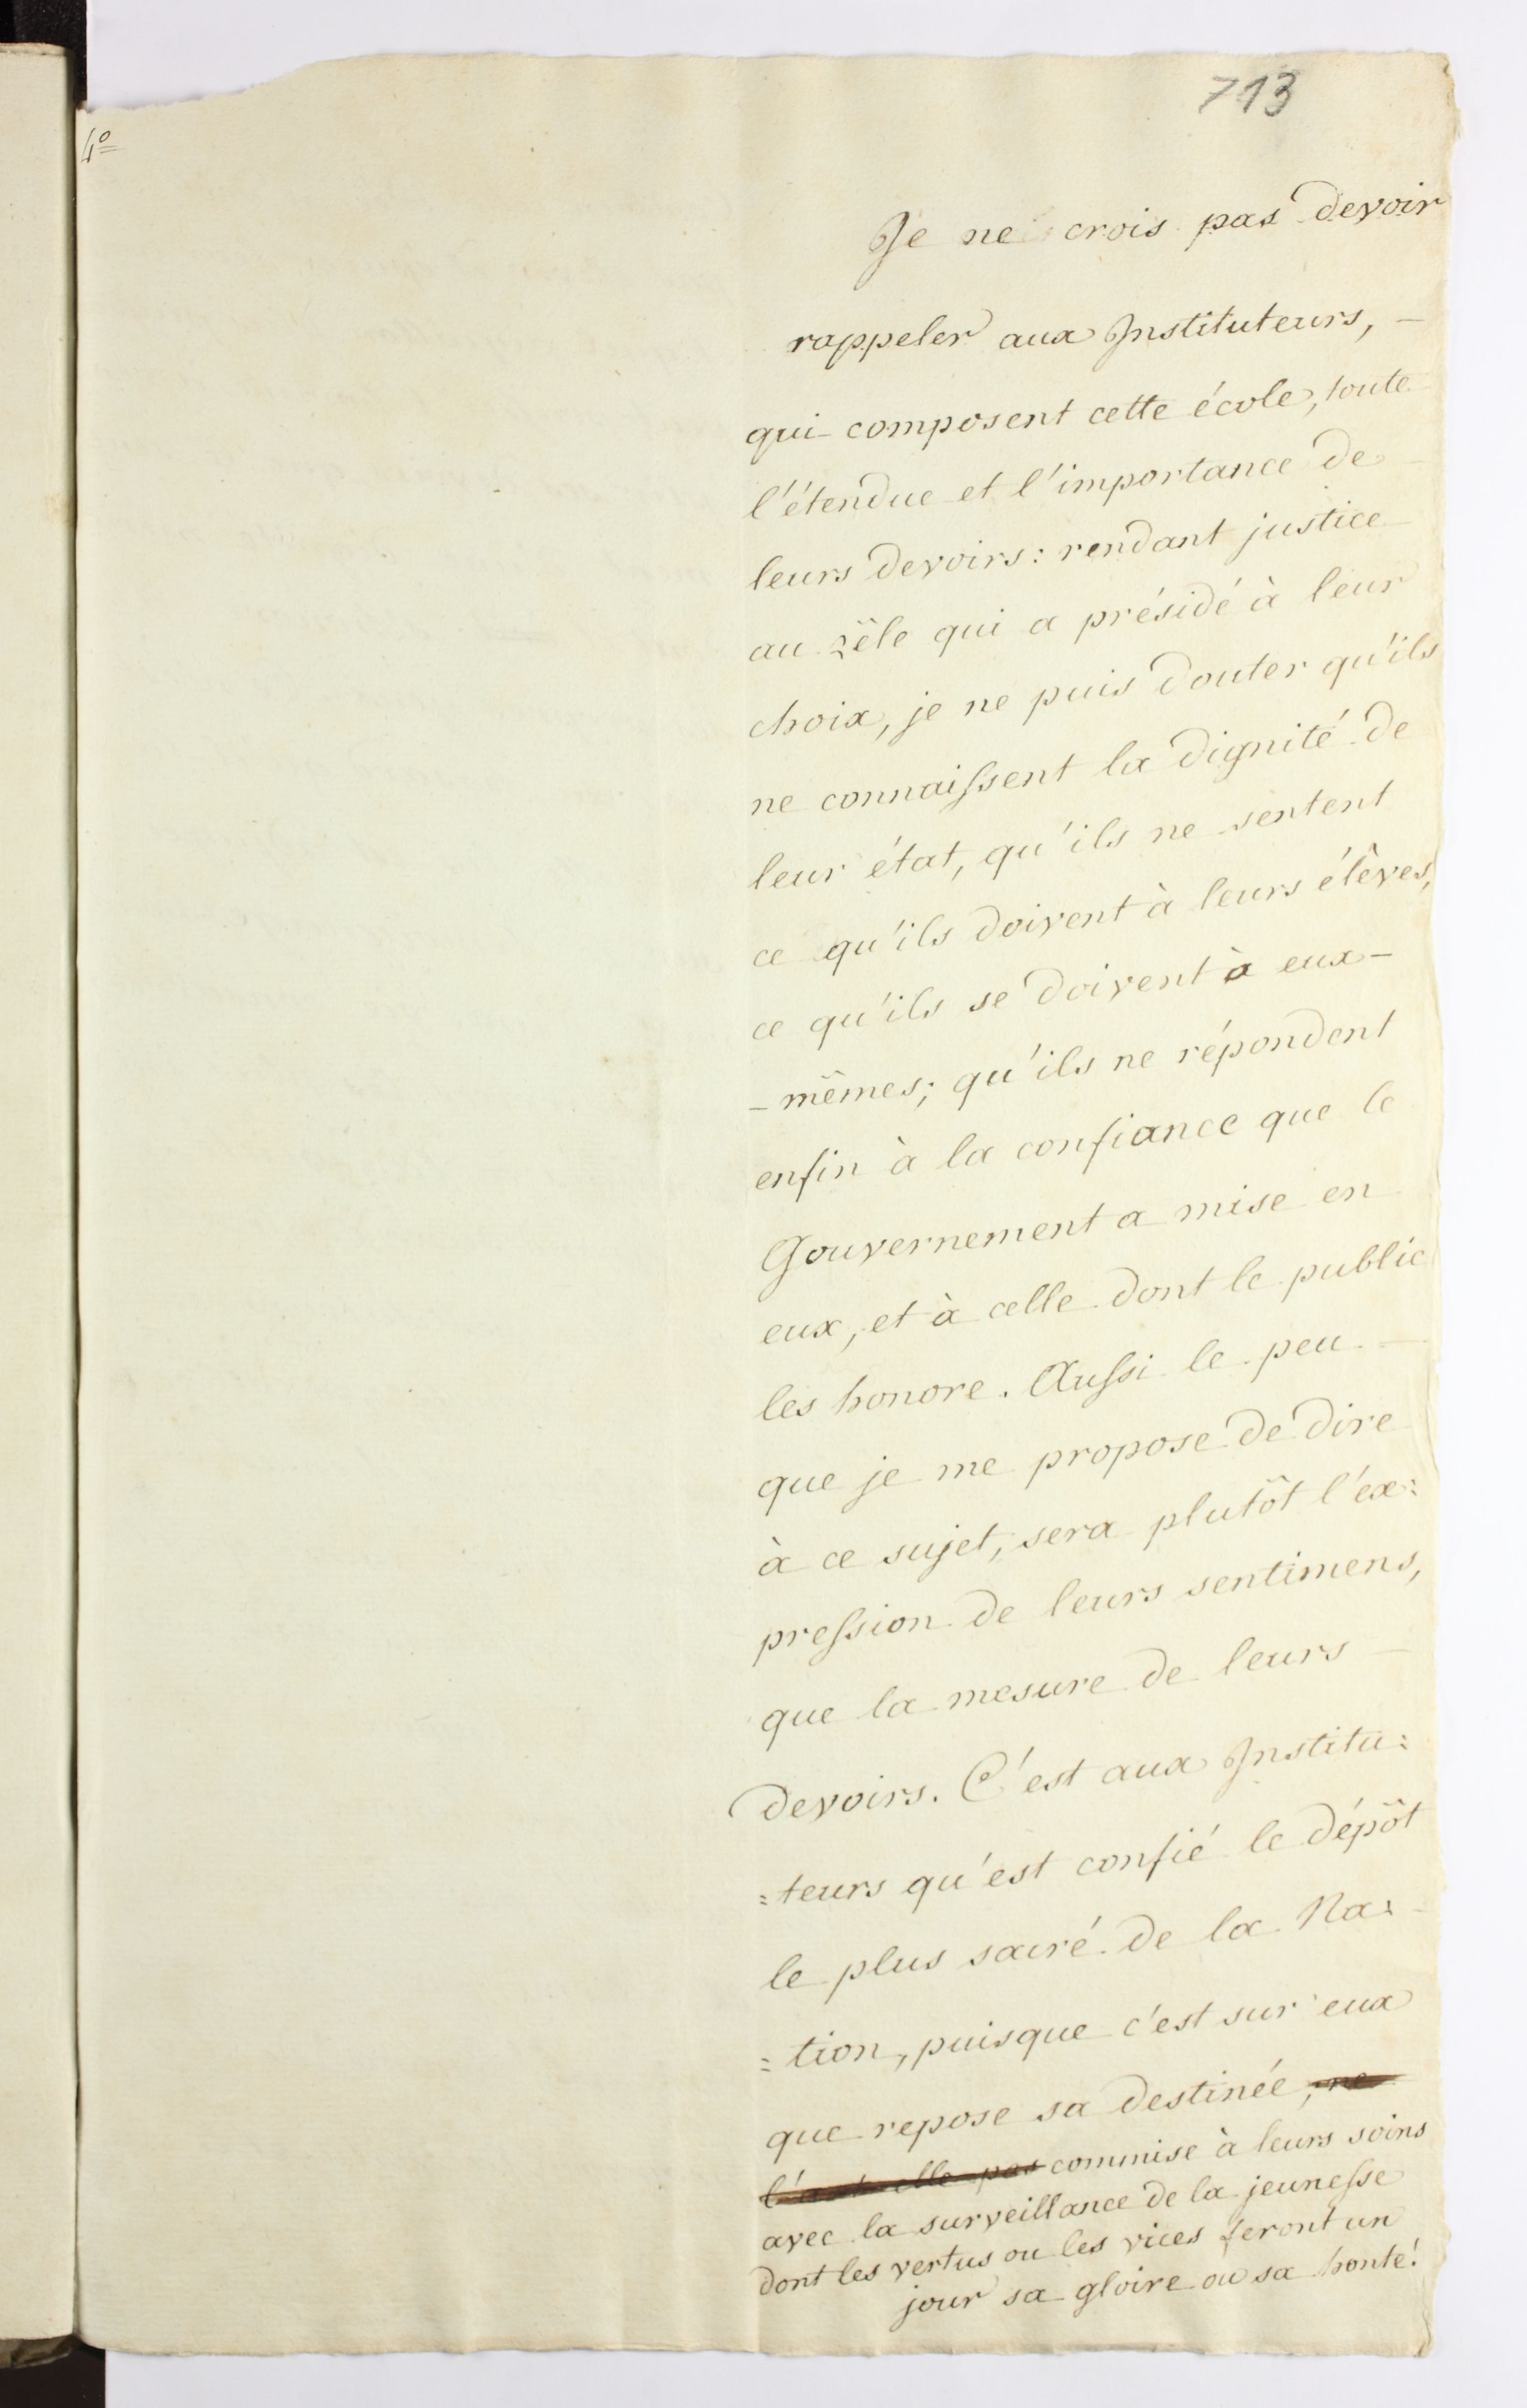 713
4º
Je ne crois pas devoir
rappeler aux Instituteurs, —
qui composent cette école, toute
l'étendue et l'importance de
leurs devoirs: rendant justice
au zèle qui a présidé à leur
choix, je ne puis douter qu'ils
ne connaissent la dignité de
leur état, qu'ils ne sentent
ce qu'ils doivent à leurs élêves,
ce qu'ils se doivent à eux-
-mêmes; qu'ils ne répondent
enfin à la confiance que le
Gouvernement a mise en
eux, et à celle dont le public
les honore. Aussi le peu —
que je me propose de dire
à ce sujet, sera plutôt l'ex=
pression de leurs sentimens,
que la mesure de leurs —
devoirs. C'est aux Institu=
=teurs qu'est confié le dépôt
le plus sacré de la Na=
=tion, puisque c'est sur eux
que repose sa destinée, ne
l'a-t-elle pas commise à leurs soins
avec la surveillance de la jeunesse
dont les vertus ou les vices feront un
jour sa gloire ou sa honte!